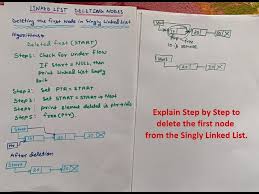 LINKED LIST DELETION NODES
Deleting the first Node in Singly Linked List
Algorithm:
Deleted first (START)
Step1: Check for under flow
If Start = NULL, then
Print Linked List Empty
Exit
Step2: Set PTR = START
Step3: Set START = START → Next
Step4: print element deleted is ptr→info
Step5: free(ptr).
Start
10 20 30
After deletion
Start
20 30
Start
10 20 30
Start
20 30
Explain Step by Step to
delete the first node
from the Singly Linked List.